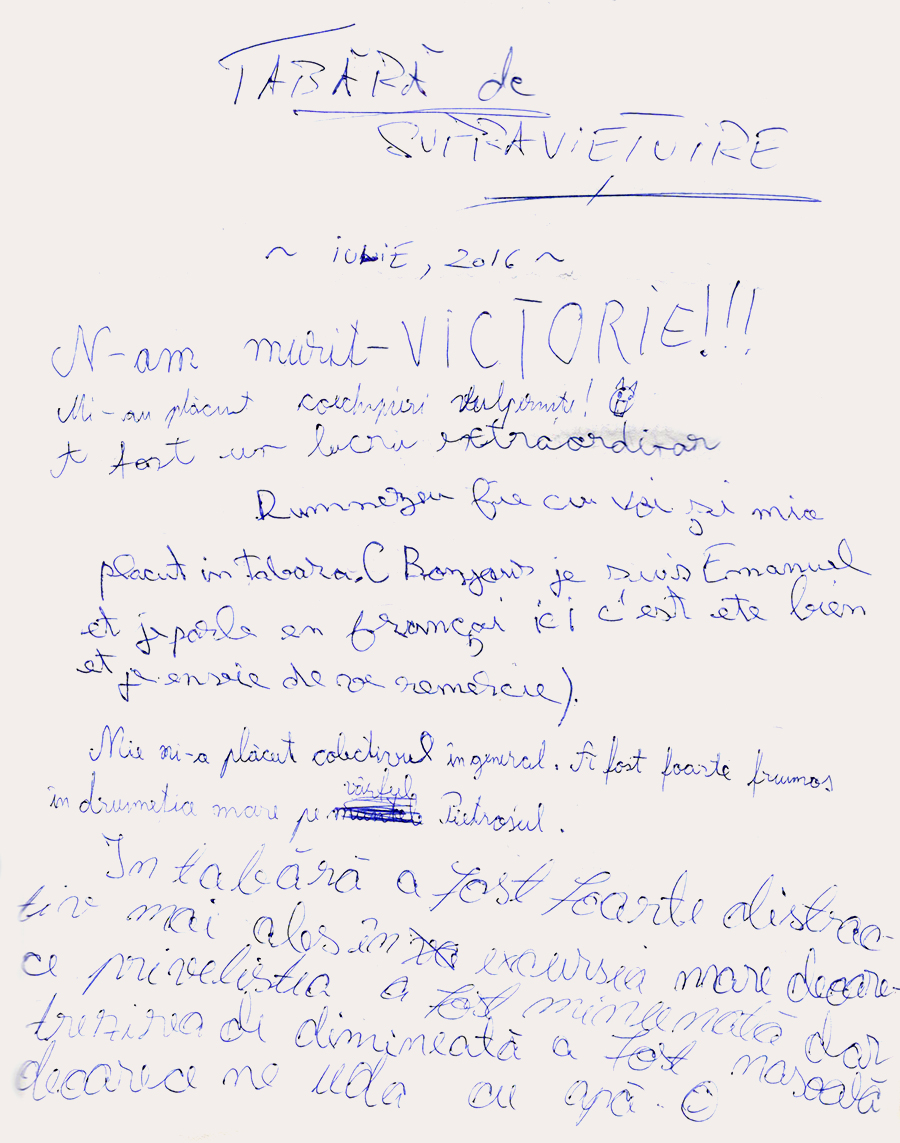 TABĂRĂ de
SUPRAVIEȚUIRE
~ iULiE, 2016 ~
N-am murit-VICTORiE!!!
Mi-au plăcut coechipieri vulpinițe!
A fost un lucru extraordinar
Dumnezeu fie cu voi și mia
placut in tabara.( Bonjours je suis Emanuel
et je parle en françai ici c'est ete bien
et je envie de ve remercie).
Mie mi-a plăcut colectivul în general. A fost foarte frumos
în drumeția mare pe vârful Pietrosul.
In tabără a fost foarte distrac-
tiv mai ales în excursia mare deoare-
ce priveliștea a fost minunată dar
trezirea di dimineată a fost nasoală
deoarece ne uda cu apă.